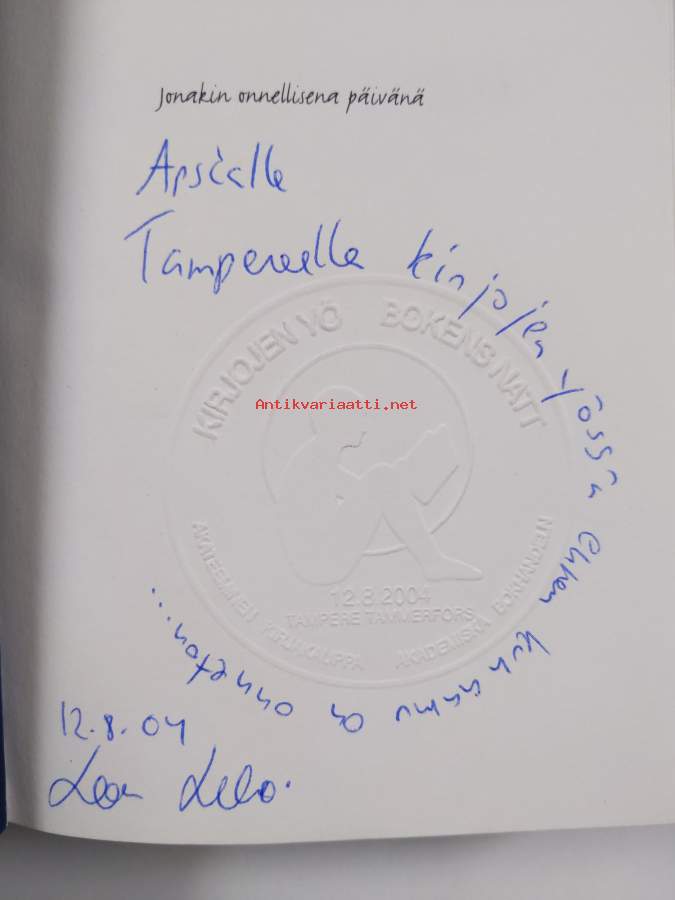 Jonakin onnellisena päivänä
Apsialle
Tampereella kirjojen yössä ennen kuin aamu on onneton...
KIRJOJEN YÖ BOKENS NATT
Antikvariaatti.net
12.8.2004
TAMPERE TAMMERFORS
AKATEEMINEN KIRJAKAUPPA AKADEMISKA BOKHANDELN
12.8.04